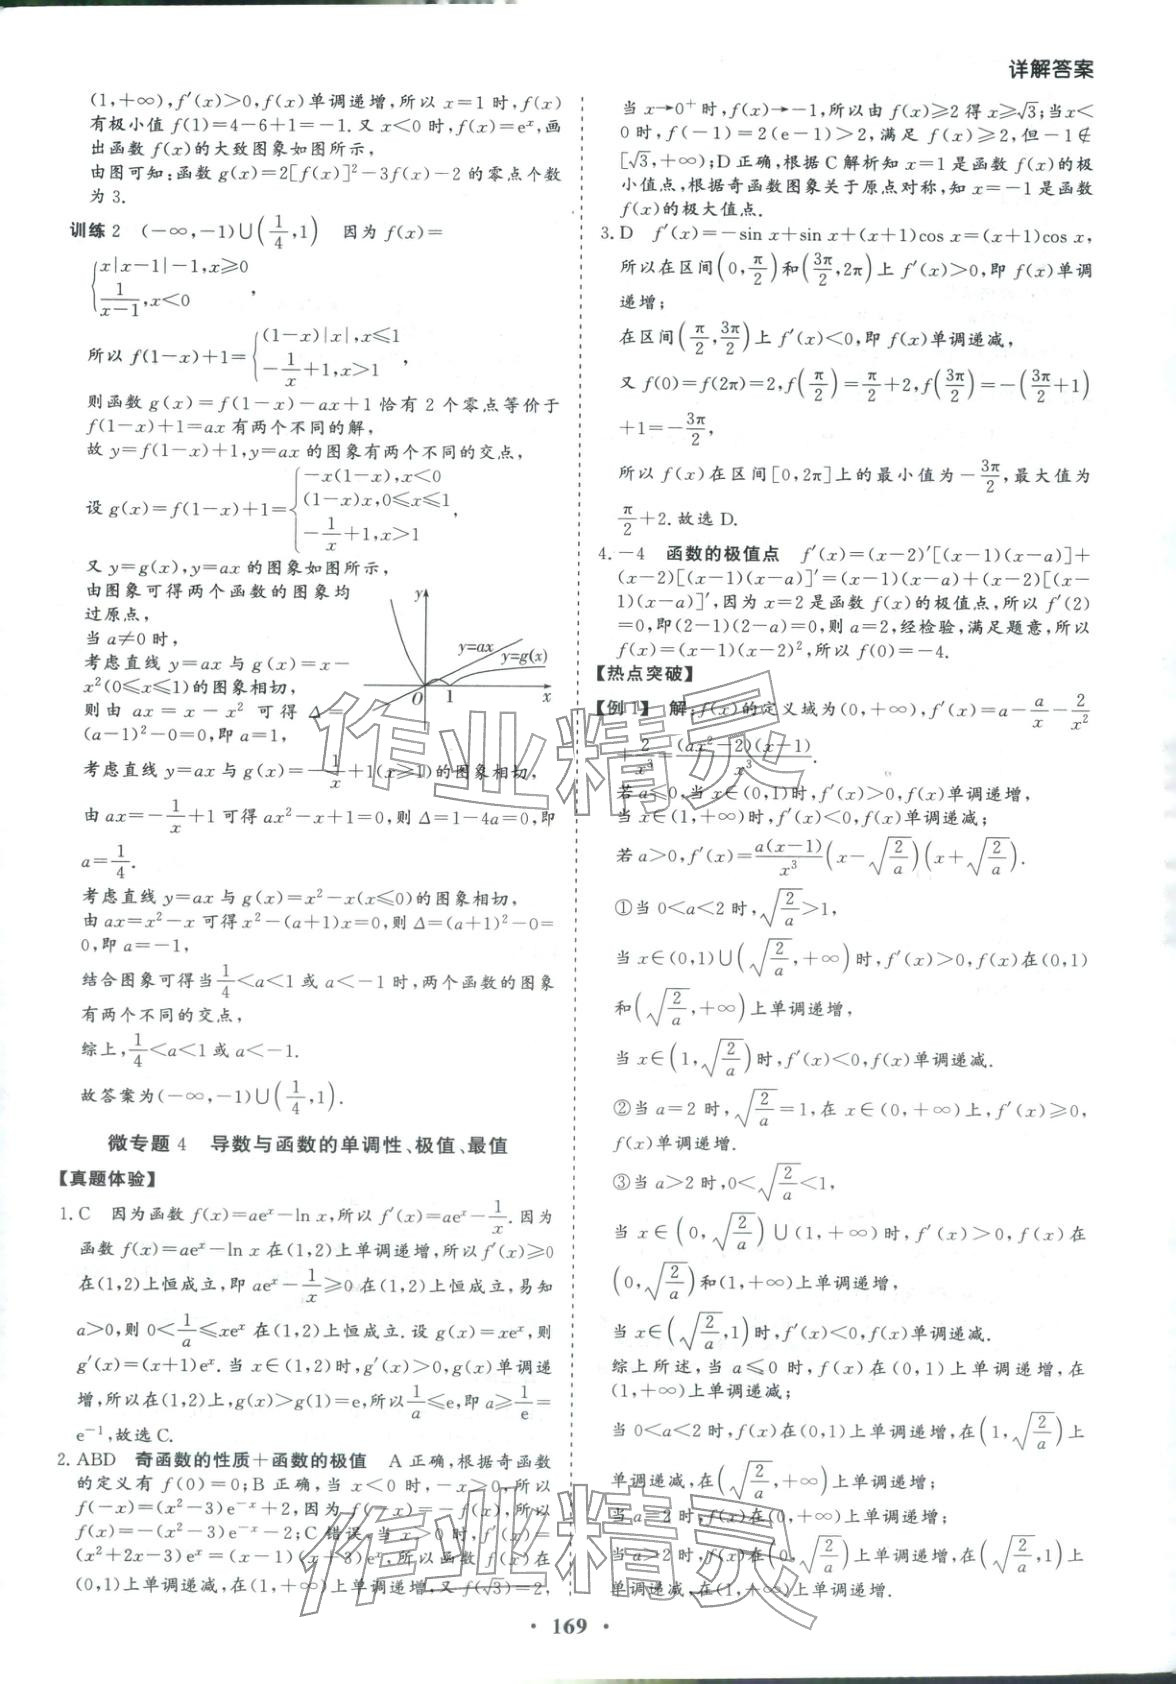 详解答案
(1,+∞),f′(x)>0,f(x)单调递增,所以 x=1 时,f(x)
有极小值 f(1)=4-6+1=-1.又 x<0 时,f(x)=eˣ,画
出函数 f(x)的大致图象如图所示,
由图可知:函数 g(x)=2[f(x)]²-3f(x)-2 的零点个数
为 3.
训练 2 (-∞,-1)∪(1/4,1) 因为 f(x)=
{x|x-1|-1,x≥0
1/(x-1),x<0 ,
所以 f(1-x)+1={(1-x)|x|,x≤1
-1/x+1,x>1 ,
则函数 g(x)=f(1-x)-ax+1 恰有 2 个零点等价于
f(1-x)+1=ax 有两个不同的解,
故 y=f(1-x)+1,y=ax 的图象有两个不同的交点,
设 g(x)=f(1-x)+1={-x(1-x),x<0
(1-x)x,0≤x≤1
-1/x+1,x>1 ,
又 y=g(x),y=ax 的图象如图所示,
由图象可得两个函数的图象均
过原点,
当 a≠0 时,
考虑直线 y=ax 与 g(x)=x-
x²(0≤x≤1)的图象相切,
则由 ax=x-x² 可得 Δ=
(a-1)²-0=0,即 a=1,
y
y=ax
y=g(x)
O 1 x
考虑直线 y=ax 与 g(x)=-1/x+1(x≥1)的图象相切,
由 ax=-1/x+1 可得 ax²-x+1=0,则 Δ=1-4a=0,即
a=1/4.
考虑直线 y=ax 与 g(x)=x²-x(x≤0)的图象相切,
由 ax=x²-x 可得 x²-(a+1)x=0,则 Δ=(a+1)²-0=
0,即 a=-1,
结合图象可得当1/4<a<1 或 a<-1 时,两个函数的图象
有两个不同的交点,
综上,1/4<a<1 或 a<-1.
故答案为(-∞,-1)∪(1/4,1).
微专题 4 导数与函数的单调性、极值、最值
【真题体验】
1.C 因为函数 f(x)=aeˣ-ln x,所以 f′(x)=aeˣ-1/x.因为
函数 f(x)=aeˣ-ln x 在(1,2)上单调递增,所以 f′(x)≥0
在(1,2)上恒成立,即 aeˣ-1/x≥0 在(1,2)上恒成立,易知
a>0,则 0<1/a≤xeˣ 在(1,2)上恒成立.设 g(x)=xeˣ,则
g′(x)=(x+1)eˣ.当 x∈(1,2)时,g′(x)>0,g(x)单调递
增,所以在(1,2)上,g(x)>g(1)=e,所以1/a≤e,即 a≥1/e=
e⁻¹,故选 C.
2.ABD 奇函数的性质+函数的极值 A 正确,根据奇函数
的定义有 f(0)=0;B 正确,当 x<0 时,-x>0,所以
f(-x)=(x²-3)e⁻ˣ+2,因为 f(-x)=-f(x),所以
f(x)=-(x²-3)e⁻ˣ-2;C 错误,当 x>0 时,f′(x)=
(x²+2x-3)eˣ=(x-1)(x+3)eˣ,所以函数 f(x)在
(0,1)上单调递减,在(1,+∞)上单调递增,又 f(√3)=2,
当 x→0⁺时,f(x)→-1,所以由 f(x)≥2 得 x≥√3;当x<
0 时,f(-1)=2(e-1)>2,满足 f(x)≥2,但-1∉
[√3,+∞);D 正确,根据 C 解析知 x=1 是函数 f(x)的极
小值点,根据奇函数图象关于原点对称,知 x=-1 是函数
f(x)的极大值点.
3.D f′(x)=-sin x+sin x+(x+1)cos x=(x+1)cos x,
所以在区间(0,π/2)和(3π/2,2π)上 f′(x)>0,即 f(x)单调
递增;
在区间(π/2,3π/2)上 f′(x)<0,即 f(x)单调递减,
又 f(0)=f(2π)=2,f(π/2)=π/2+2,f(3π/2)=-(3π/2+1)
+1=-3π/2,
所以 f(x)在区间[0,2π]上的最小值为-3π/2,最大值为
π/2+2.故选 D.
4.-4 函数的极值点 f′(x)=(x-2)′[(x-1)(x-a)]+
(x-2)[(x-1)(x-a)]′=(x-1)(x-a)+(x-2)[(x-
1)(x-a)]′,因为 x=2 是函数 f(x)的极值点,所以 f′(2)
=0,即(2-1)(2-a)=0,则 a=2,经检验,满足题意,所以
f(x)=(x-1)(x-2)²,所以 f(0)=-4.
【热点突破】
【例 1】 解:f(x)的定义域为(0,+∞),f′(x)=a-a/x-2/x²
+2/x³=(ax²-2)(x-1)/x³.
若 a≤0,当 x∈(0,1)时,f′(x)>0,f(x)单调递增,
当 x∈(1,+∞)时,f′(x)<0,f(x)单调递减;
若 a>0,f′(x)=a(x-1)/x³(x-√(2/a))(x+√(2/a)).
①当 0<a<2 时,√(2/a)>1,
当 x∈(0,1)∪(√(2/a),+∞)时,f′(x)>0,f(x)在(0,1)
和(√(2/a),+∞)上单调递增,
当 x∈(1,√(2/a))时,f′(x)<0,f(x)单调递减.
②当 a=2 时,√(2/a)=1,在 x∈(0,+∞)上,f′(x)≥0,
f(x)单调递增.
③当 a>2 时,0<√(2/a)<1,
当 x∈(0,√(2/a))∪(1,+∞)时,f′(x)>0,f(x)在
(0,√(2/a))和(1,+∞)上单调递增,
当 x∈(√(2/a),1)时,f′(x)<0,f(x)单调递减.
综上所述,当 a≤0 时,f(x)在(0,1)上单调递增,在
(1,+∞)上单调递减;
当 0<a<2 时,f(x)在(0,1)上单调递增,在(1,√(2/a))上
单调递减,在(√(2/a),+∞)上单调递增;
当 a=2 时,f(x)在(0,+∞)上单调递增;
当 a>2 时,f(x)在(0,√(2/a))上单调递增,在(√(2/a),1)上
单调递减,在(1,+∞)上单调递增.
作业精灵
作业精灵
· 169 ·